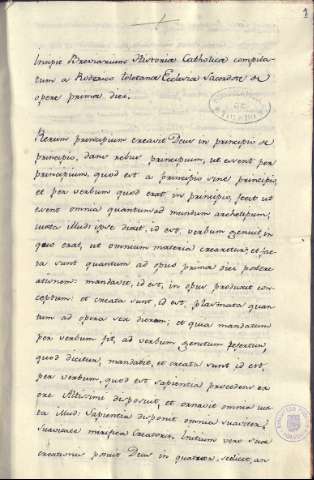 Incipit Breviarium Historiæ Catholicæ compila-
tum a Roderico toletanæ Ecclesiæ Sacerdote de
opere primæ diei.
Rerum principium creavit Deus in principio de
principio, dans rebus principium, ut essent per
principium, quod est a principio sine principio,
et per verbum quod erat in principio, fecit ut
essent omnia quantum ad mundum archetipum;
iuxta illud ipse dixit, id est, verbum genuit, in
quo erat, ut omnium materia crearetur; et fac-
ta sunt quantum ad opus primæ diei
mandavit, id est, in opus produxit con-
ceptum: et creata sunt, id est, plasmata quan-
tum ad opera sex dierum; et quia mandatum
per verbum fit, ad verbum genitum refertur,
quod dicitur, mandavit, et creata sunt id est,
per verbum, quod est sapientia procedens ex
ore Altissimi disposuit, et ornavit omnia iux-
ta illud: Sapientia disponit omnia suaviter;
suavitate mirifica Creatoris. Initium vero suæ
creationis posuit Deus in quatuor, scilicet, an